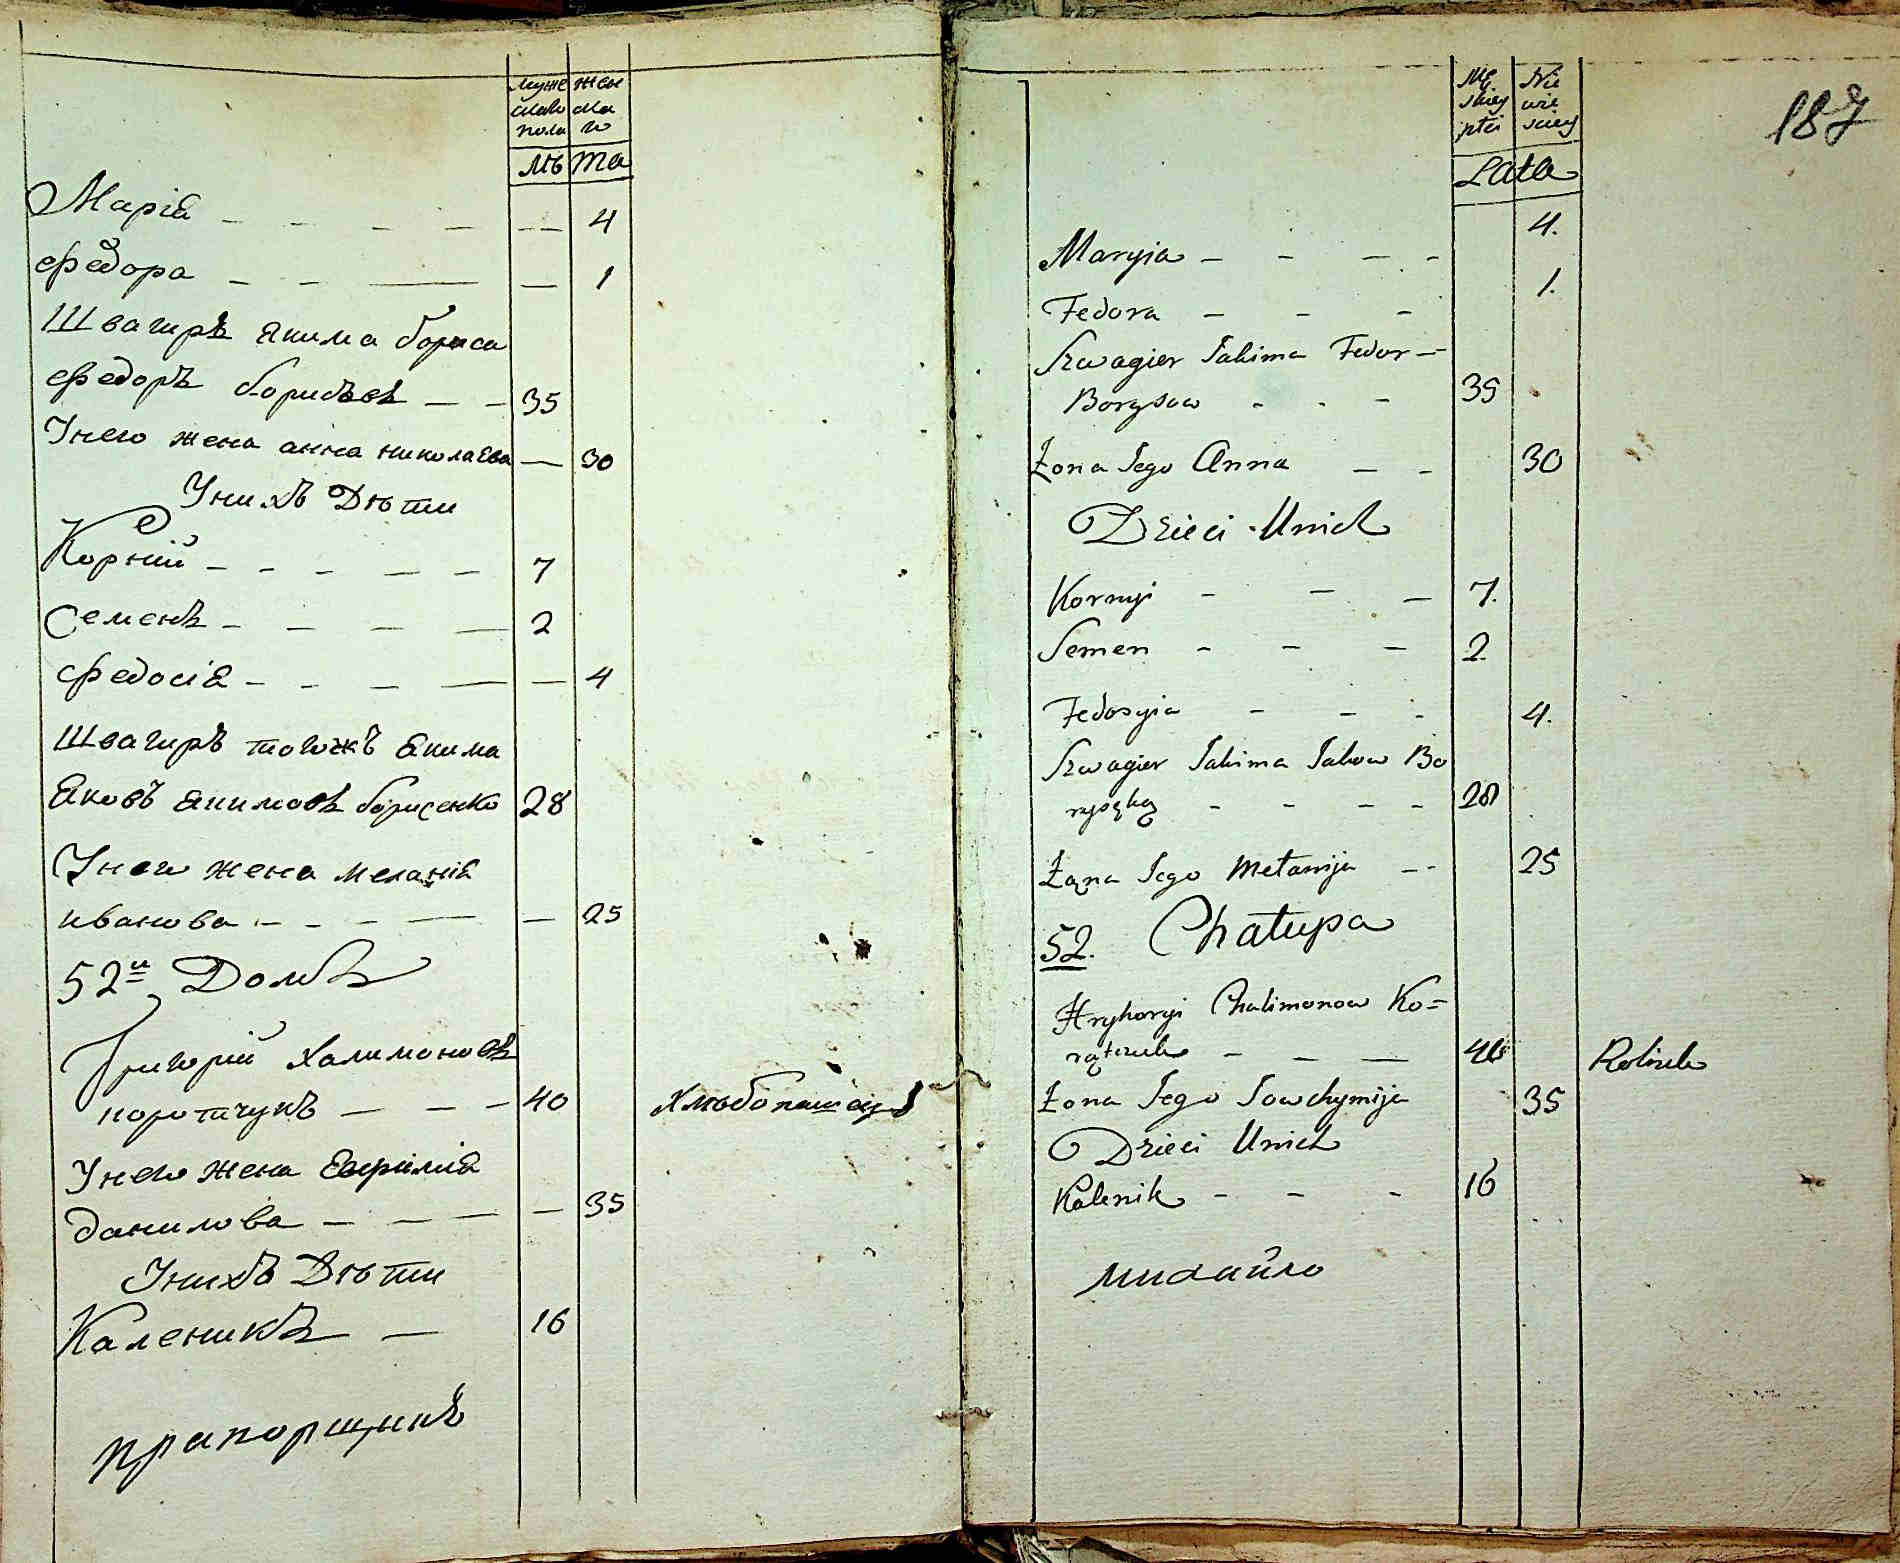 Муже жен
ска
пола
лѣта
Марія — — — — — 4
Федора — — — — 1
Швагиръ Якима бориса
Федоръ борисовъ — — 35
Унего жена анна николаева — 30
Унихъ Дѣти
Корній — — — — — 7
Семенъ — — — — 2
Федосія — — — — — 4
Швагиръ тогожъ Якима
Яковъ Якимовъ борисенко 28
Унего жена меланія
иванова — — — — — 25
52й Домъ
Григорій Халимоновъ
коротчукъ — — — 40 Хлѣбопашецъ
Унего жена Евфимія
данилова — — — — 35
Унихъ Дѣти
Каленикъ — 16
прапорщикъ
187
Mę Nie
skiey wie
płci sciey
Lata
Maryia — — — - 4.
Fedora — — — 1.
Szwagier Jakima Fedor —
Borysow - - - 35
Żona Jego Anna — — 30
Dzieci Unich
Kornyi — — — 7.
Semen - - - 2.
Fedosyia - - - 4.
Szwagier Jakima Jakow Bo
- - - - 28
Żona Jego Mełanija -- 25
52. Chałupa
Hryhoryi Chalimonow Ko=
— — — 40 Rolnik
Żona Jego Jowchymija 35
Dzieci Unich
Kalenik - - - 16
михайло